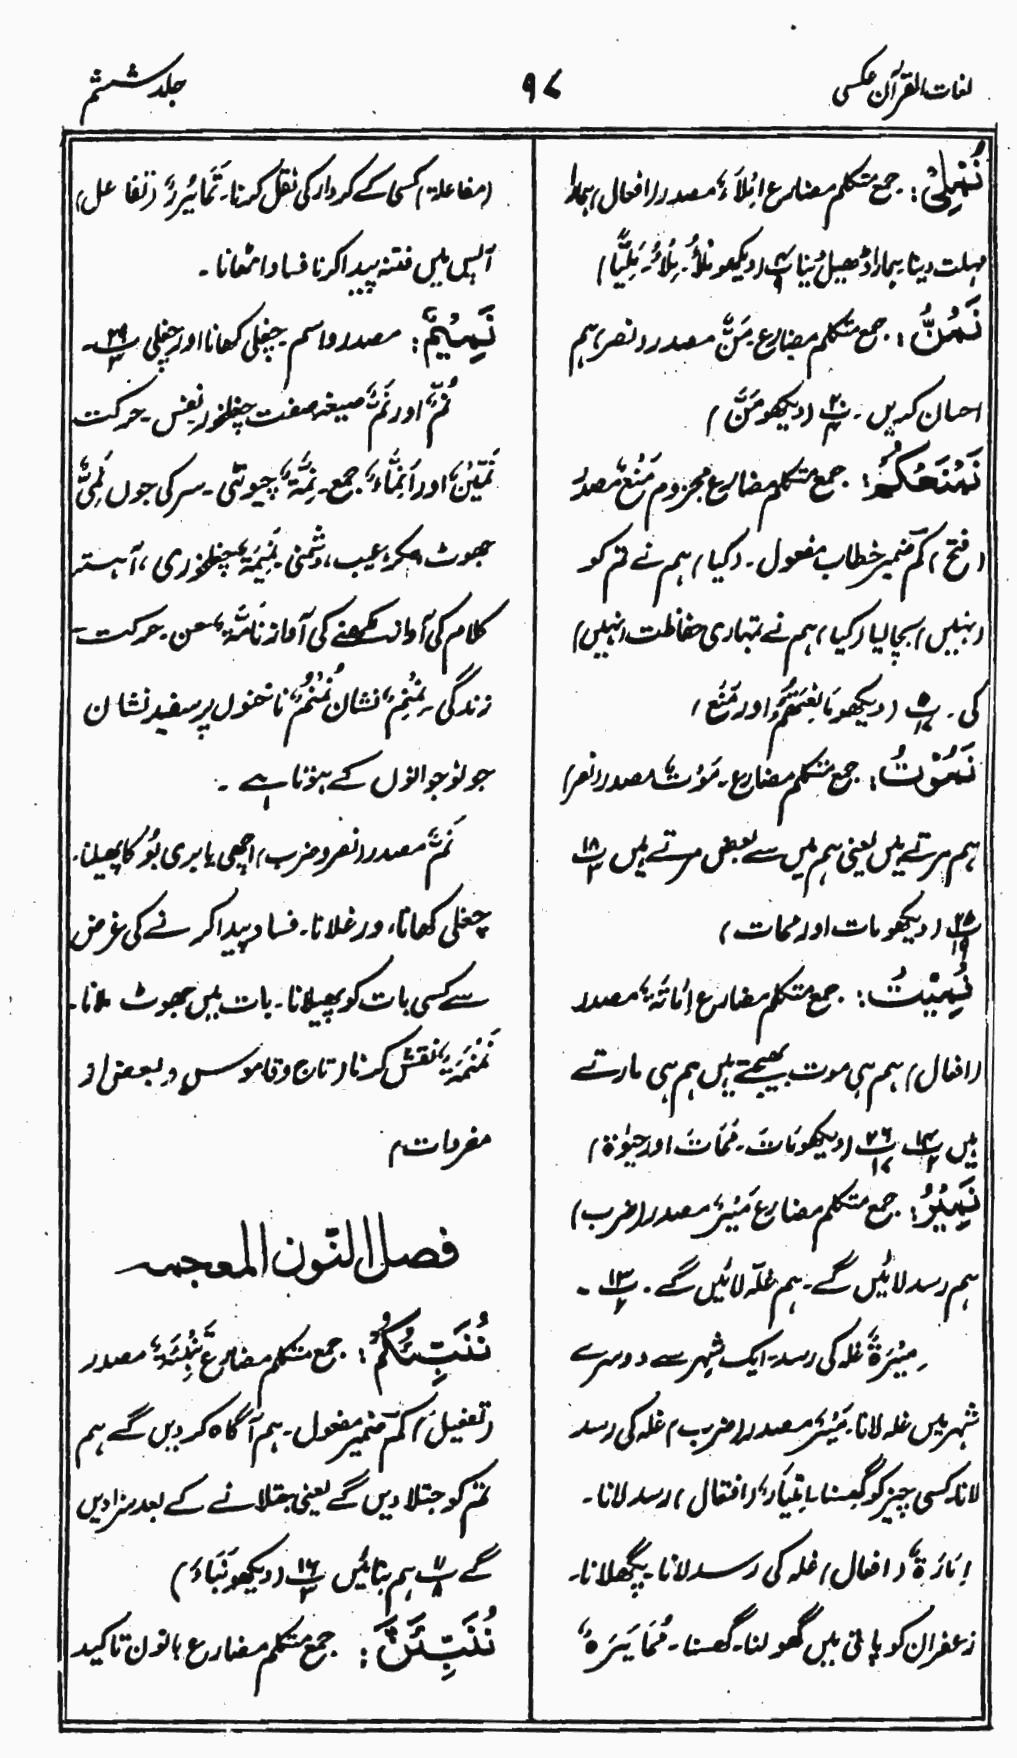 لغات القرآن عکسی
۹۷
جلد ششم
نُمْلِیْ: جمع متکلم مضارع اِمْلَاءٌ مصدر (افعال) ہمارا
مہلت دینا۔ ہمارا ڈھیل دینا (دیکھو
نَمُنُّ: جمع متکلم مضارع مَنٌّ مصدر (نصر) ہم
احسان کریں۔ (دیکھو مَنَّ)
نَمْنَعْکُمْ: جمع متکلم مضارع مجزوم مَنْعٌ مصدر
(فتح) کُمْ ضمیر خطاب مفعول۔ (کیا) ہم نے تم کو
(نہیں) بچا لیا (کیا) ہم نے تمہاری حفاظت (نہیں)
کی۔ (دیکھو اور مَنَعَ)
نَمُوْتُ: جمع متکلم مضارع۔ مَوْتٌ مصدر (نصر)
ہم مرتے ہیں یعنی ہم میں سے بعض مرتے ہیں پ ۱۸
پ ۲۵ (دیکھو مات اور ممات)
نُمِیْتُ: جمع متکلم مضارع اِمَاتَۃٌ مصدر
(افعال) ہم ہی موت بھیجتے ہیں ہم ہی مارتے
ہیں پ ۱۴ پ ۲۶ (دیکھو مَاتَ۔ مَمَاتَ اور حیٰوۃ)
نَمِیْرُ: جمع متکلم مضارع مَیْرٌ مصدر (ضرب)
ہم رسد لائیں گے۔ ہم غلّہ لائیں گے۔ پ ۱۳۔
مِیْرَۃٌ غلہ کی رسد۔ ایک شہر سے دوسرے
شہر میں غلہ لانا۔ مَیْرٌ مصدر (ضرب) غلہ کی رسد
لانا۔ کسی چیز کو گھسنا۔ اِمْتِیَارٌ (افتعال) رسد لانا۔
اِمَارَۃٌ (افعال) غلہ کی رسد لانا۔ پگھلانا۔
زعفران کو پانی میں گھولنا۔ گھسنا۔ مُمَایَرَۃٌ
(مفاعلۃ) کسی کے کردار کی نقل کرنا۔ تَمَایُرٌ (تفاعل)
آپس میں فتنہ پیدا کرنا فساد اٹھانا۔
نَمِیْمٌ: مصدر و اسم۔ چغلی کھانا اور چغلی پ ۲۹۔
نُمٌّ اور نَمٌّ صیغہ صفت چغلخور نفس۔ حرکت
اور اَنِمَّاءُ جمع۔ نِمَّۃٌ چیونٹی۔ سر کی جوں
جھوٹ، عیب، دشمنی نَمِیْمَۃٌ چغلخوری، آہستہ
کلام کی آواز لکھنے کی آواز نَامَّۃٌ حس۔ حرکت
زندگی۔ نِمْنِمٌ نشان نُمْنُمٌ ناخنوں پر سفید نشان
جو نوجوانوں کے ہوتا ہے۔
نَمٌّ مصدر (نصر و ضرب) اچھی یا بری بُو کا پھیلنا۔
چغلی کھانا، ورغلانا۔ فساد پیدا کرنے کی غرض
سے کسی بات کو پھیلانا۔ بات میں جھوٹ ملانا۔
نَمْنَمَۃٌ نقش کرنا (تاج و قاموس و بعض از
مفردات)
فصل النّون المعجمہ
نُنَبِّئُکُمْ: جمع متکلم مضارع تَنْبِئَۃٌ مصدر
(تفعیل) کُمْ ضمیر مفعول۔ ہم آگاہ کر دیں گے ہم
تم کو جتلا دیں گے یعنی جتلانے کے بعد سزا دیں
گے پ ۱۱ ہم بتائیں پ ۱۶ (دیکھو نَبَاءٌ)
نُنَبِّئَنَّ: جمع متکلم مضارع بانون تاکید